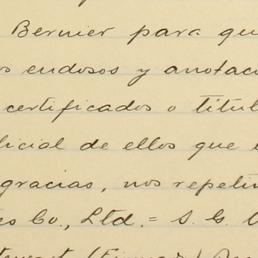 Bernier para qu
os endosos y anotac
certificados o títul
icial de ellos que
gracias, nos repeti
es Co., Ltd. = S. G.